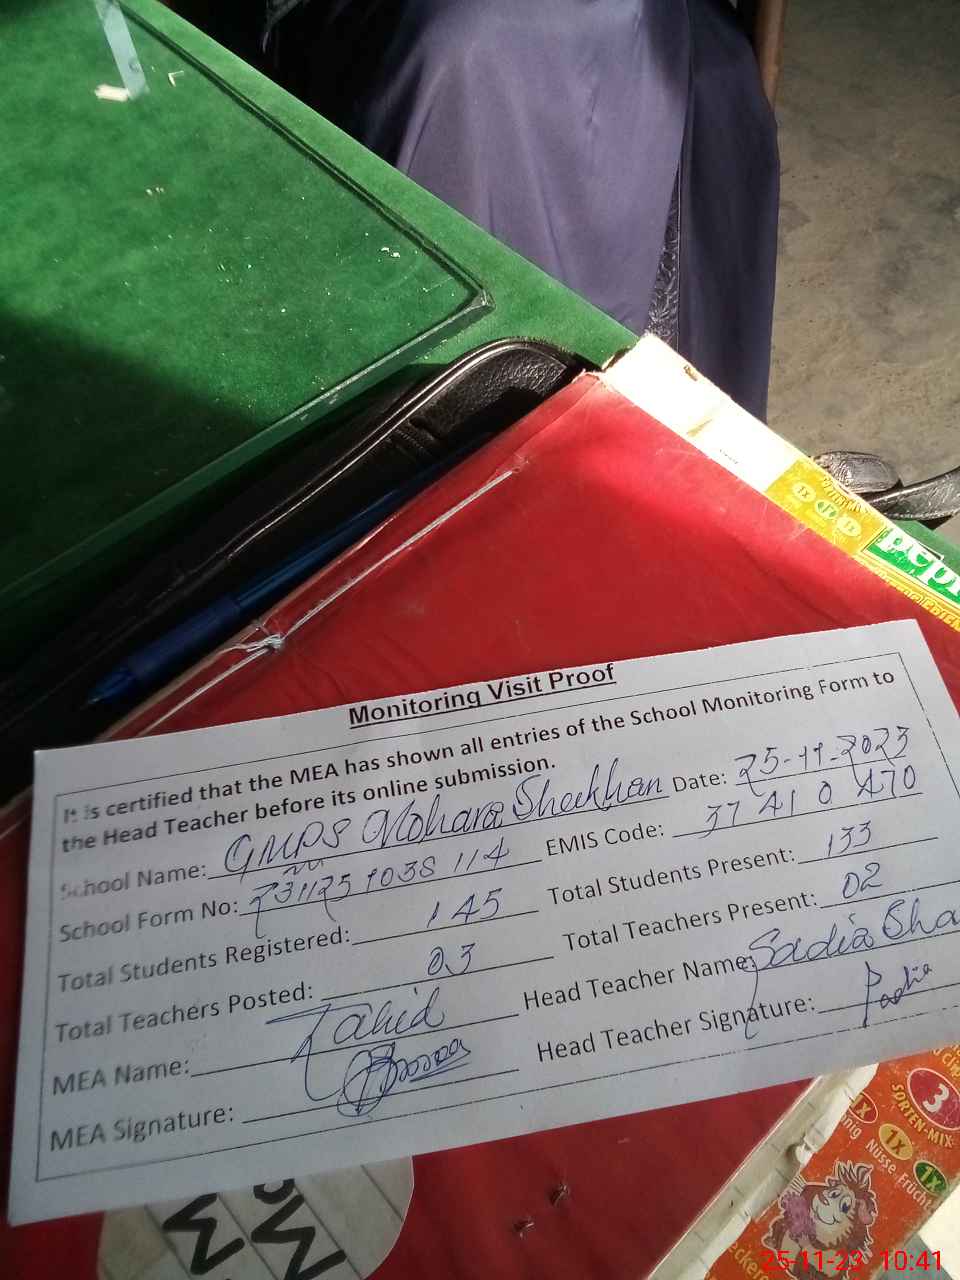 Monitoring Visit Proof
It is certified that the MEA has shown all entries of the School Monitoring Form to
the Head Teacher before its online submission.
School Name: GMPS Mohara Sheikhan Date: 25-11-2023
School Form No: 231125 1038 114 EMIS Code: 37 41 0 470
Total Students Registered: 145 Total Students Present: 133
Total Teachers Posted: 03 Total Teachers Present: 02
MEA Name: Zahid Head Teacher Name: Sadia Sha
MEA Signature: Head Teacher Signature: Sadia
1x 1x 1x
3
SORTEN-MIX
1x 1x 1x
Nüsse
25-11-23 10:41